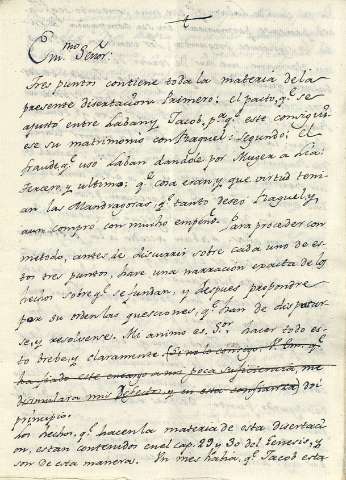 Em.mo Señor.
Tres puntos contiene toda la materia de la
presente disertacion. Primero: el pacto, q.e se
ajustó entre Laban y Jacob, p.a q.e este consigui-
ese su matrimonio con Raquel: segundo: El
fraude, q.e usó Laban dandole por Muger a Lia:
Tercero, y ultimo: q.e cosa eran, y que virtud teni-
an las Mandragoras q.e tanto deseó Raquel, y
aun compro con mucho empeño. Para proceder con
metodo, antes de discurrir sobre cada uno de es-
tos tres puntos, haré una narracion exacta de los
hechos sobre q.e se fundan, y despues propondre
por su orden las questiones, q.e han de disputar-
se, y resolverse. Mi animo es, S.or hacer todo es-
to brebe, y claramente. Si no lo consigo, V. Em. q.e
ha fiado este encargo a mi poca suficiencia, me
disimulará mis defectos, y en esta confianza doi
principio.
Los hechos, q.e hacen la materia de esta disertaci-
on, estan contenidos en el cap. 29, y 30 del Genesis, y
son de esta manera. Un mes habia, q.e Jacob esta